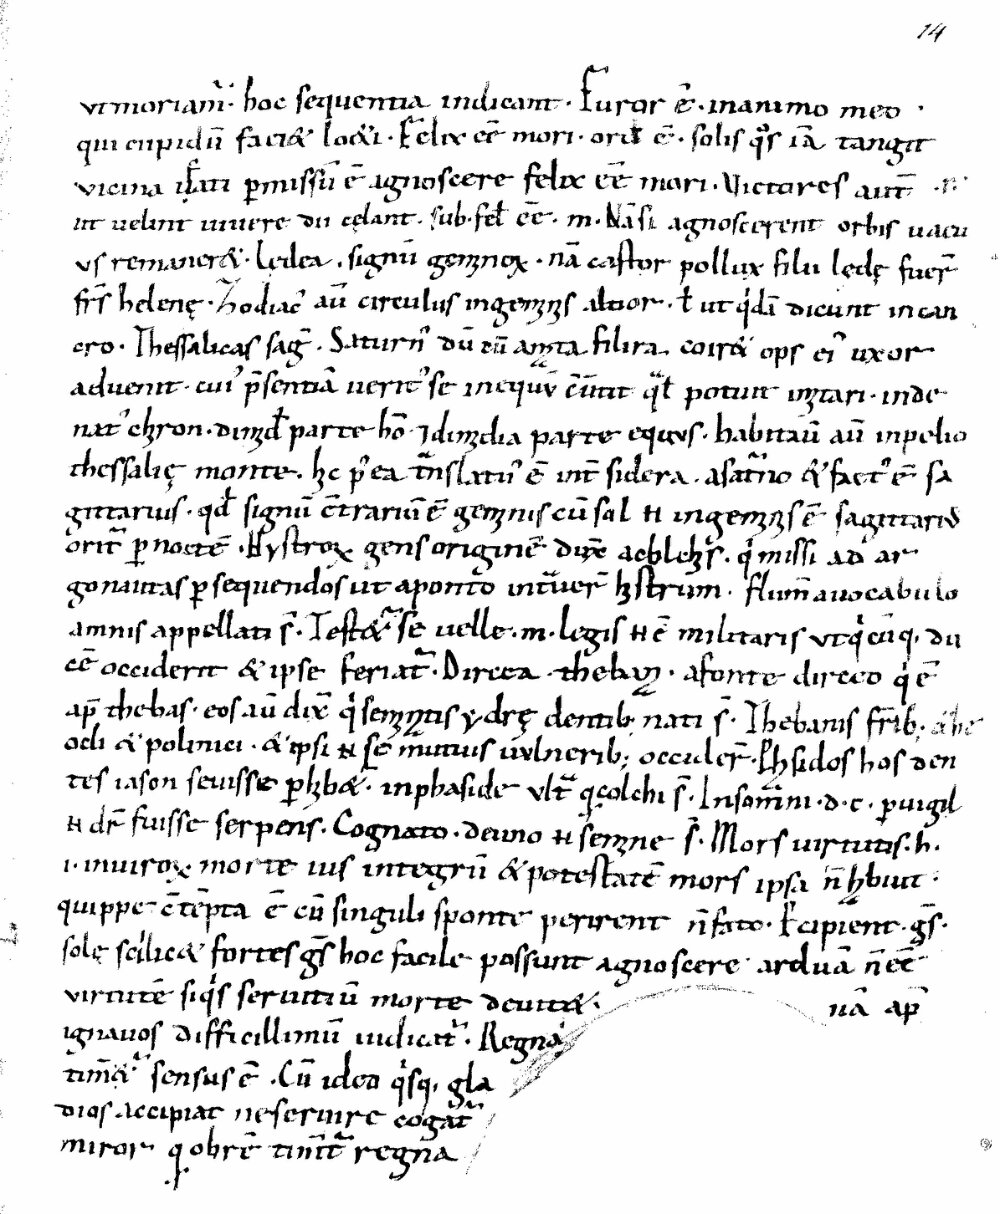 14
ut moriam̃. hoc sequentia indicant. Furor ē. inanimo meo.
qui cupidū faci& lo&i. Felix ēē mori. ē. solis q's iā tangit
vicina p̱missū ē agnoscere felix ēē mori. Victores aut̄
ut velint vivere dii celant. sub. ēē. m. Nā si agnoscerent orbis vacu
us remaner&. Ledea. signū geminoꝝ. nā castor pollux filii ledę fuer̄
fr̄s helenę. Zodiac' aū circulus ingeminis altior. ł ut q'dā dicunt in can
cro. Thessalicas sag̃. Saturn' dū cū amata filira coir& ops ei' uxor
advenit. cui' p̄sentiā verit' se inequū potuit imitari. inde
nat' chiron. parte ho ⁊ dimidia parte equus. habitaū aū inpelio
thessalię monte. hic p'ea t̃nslatu' ē int̄ sidera. asat̃no & fact' ē sa
gittarius. qđ signū c̄trariū ē geminis cū sol ħ ingeminis ē sagittarius
orit̃ p̱ noctē. gens originē q' missi ad ar
gonautas p̱sequendos ut aponto histrum. flum̄ avocabulo
amnis appellati s̄. Test&' se velle. m. legis ħ ē militaris utq'cūq; dū
cē occiderit & ipse feriat̃. Dircea. theban. afonte dirceo q' ē
ap̄ thebas. eos aū dix̄ q' ydrę dentib; nati s̄. Thebanis fr̄ib;
ocli & polinici. & ipsi ħ sē mutuis vulnerib; occider̄. Phasidos hos den
tes iason sevisse p̱hib&. inphaside colchi s̄. Insom̄m. d. c. p̱vigil
ħ dr̄ fuisse serpens. Cognato. deuno ħ semine s̄. Mors virtutis. h.
i. inviroꝝ morte ius integrū & potestatē mors ipsa n̄ hibuit.
quippe c̄tēpta ē cū singuli sponte perirent n̄ fato. p̱cipient. gs̄.
solę scilic& fortes gs̄ hoc facile possunt agnoscere arduā n̄ ēē
virtutē siq's servitiū morte devit&. nā ap̄
ignavos difficillimū iudicat̃. Regna
tim&' sensus ē. Cū ideo q'sq; gla
dios accipiat ne servire cogat̃
miror q obrē timēt̃ regna